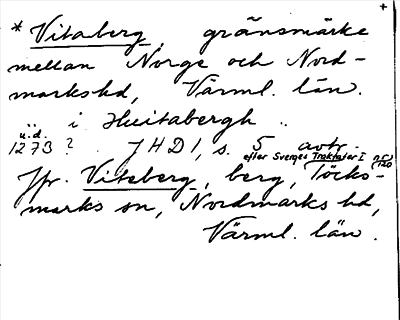 +
* Vitaberg, gränsmärke
mellan Norge och Nord-
markshd, Värml. län.
.. i Huitabergh ..
u.d.
1273? JHD 1, s. 5 avtr.
efter Sverges Traktater I nr 120
Jfr. Vitaberg, berg, Töcks-
marks sn, Nordmarks hd,
Värml. län.